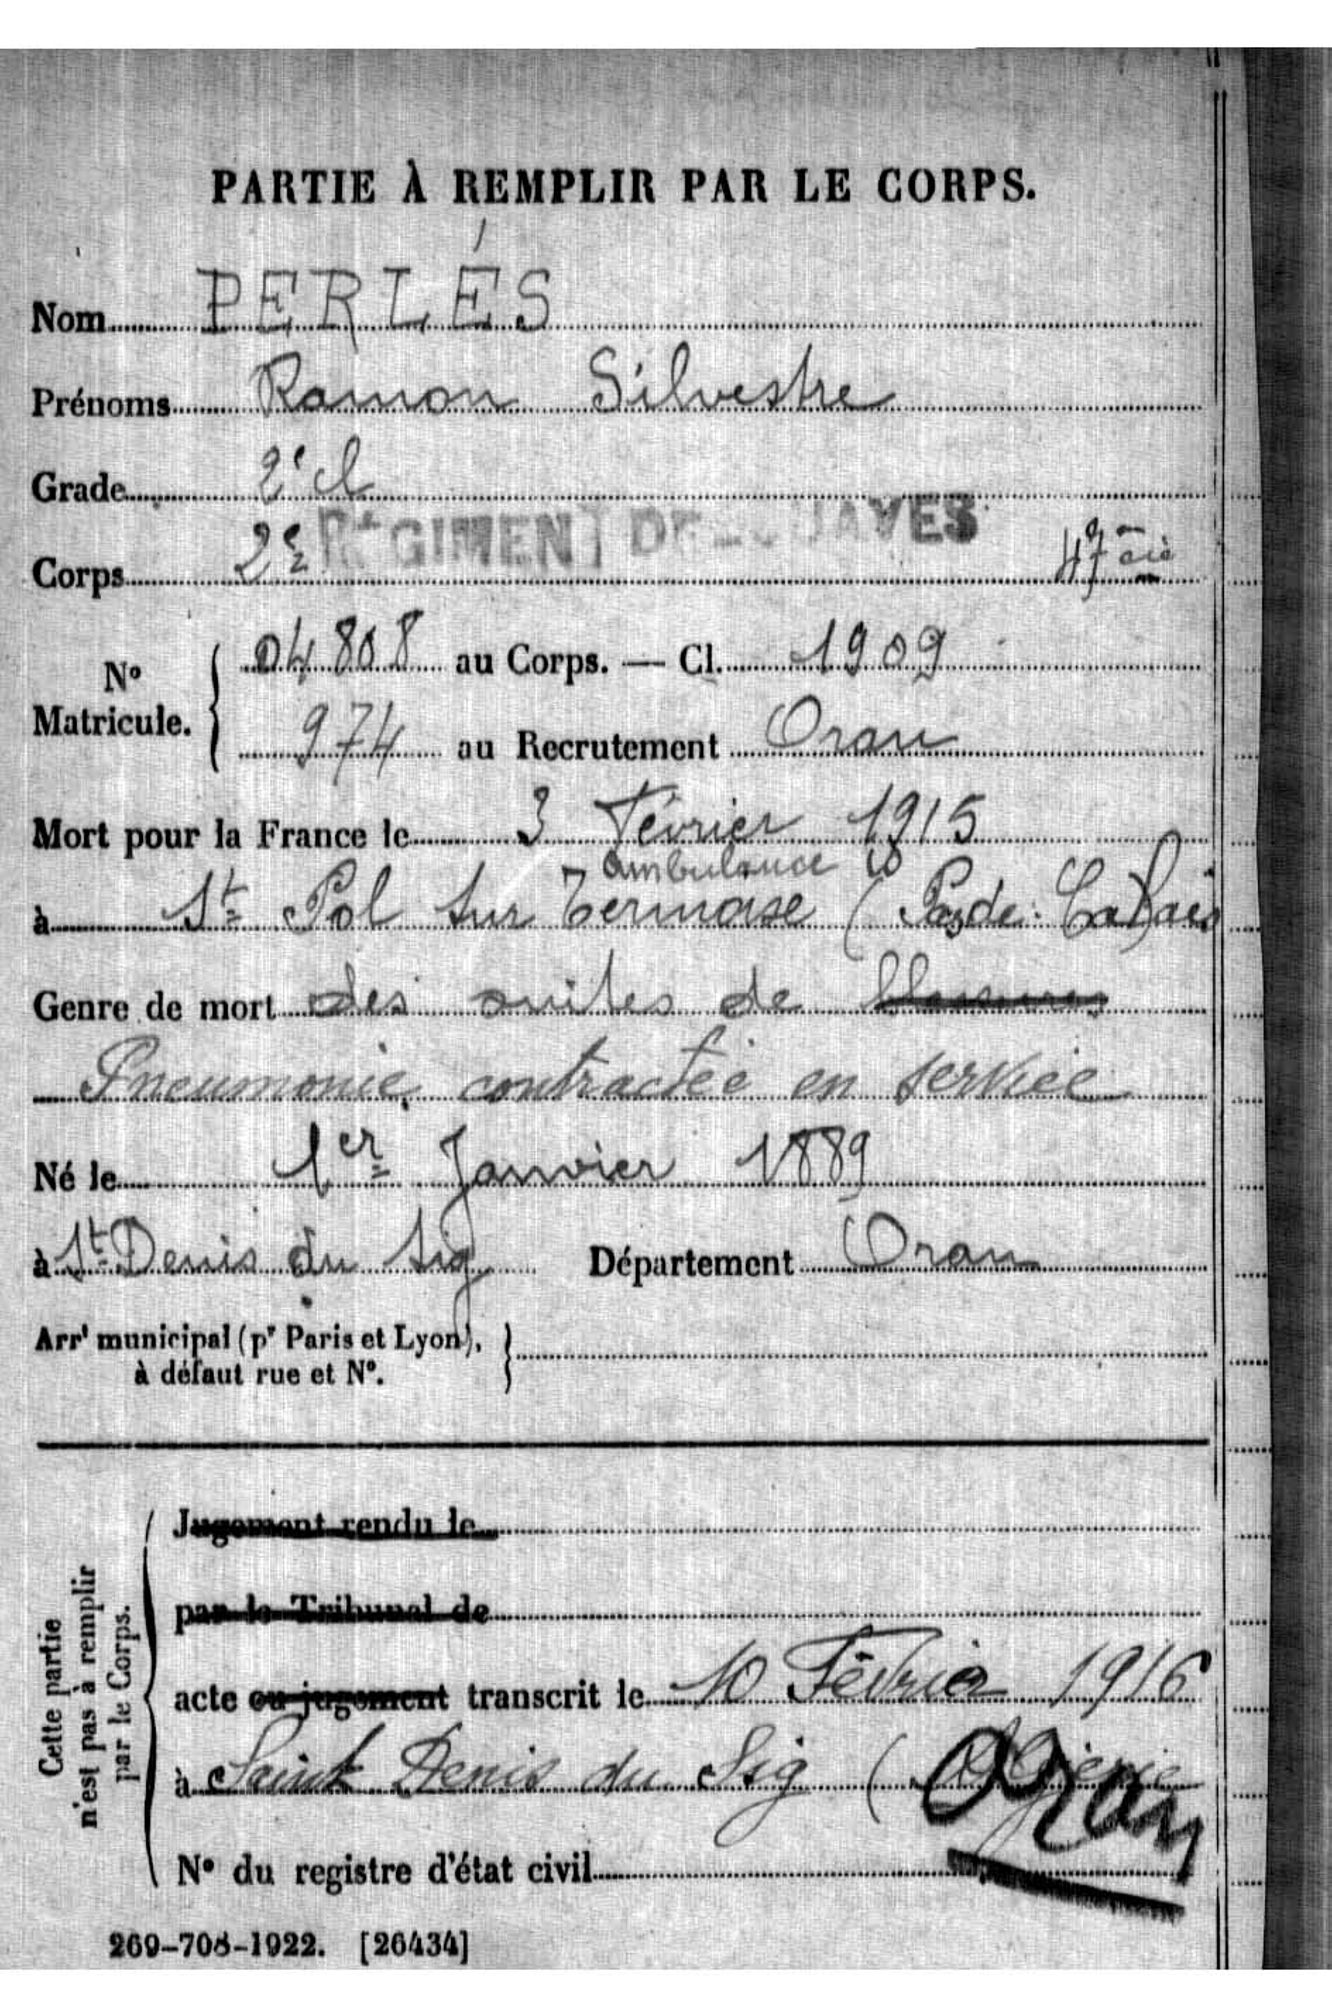 PARTIE À REMPLIR PAR LE CORPS.
Nom PERLÉS
Prénoms Ramon Silvestre
Grade 2e cl
Corps 2e RÉGIMENT DE ZOUAVES 47e cie
No Matricule. 04808 au Corps. — Cl. 1909
974 au Recrutement Oran
Mort pour la France le 3 Février 1915
ambulance 10
à St Pol sur Ternoise (Pas de Calais)
Genre de mort des suites de blessures
Pneumonie contractée en service
Né le 1er Janvier 1889
à St Denis du Sig Département Oran
Arrt municipal (pr Paris et Lyon),
à défaut rue et No.
Cette partie
n'est pas à remplir
par le Corps.
Jugement rendu le
par le Tribunal de
acte ou jugement transcrit le 10 Février 1916
à Saint Denis du Sig (Algérie
Oran
No du registre d'état civil
269-708-1922. [26434]